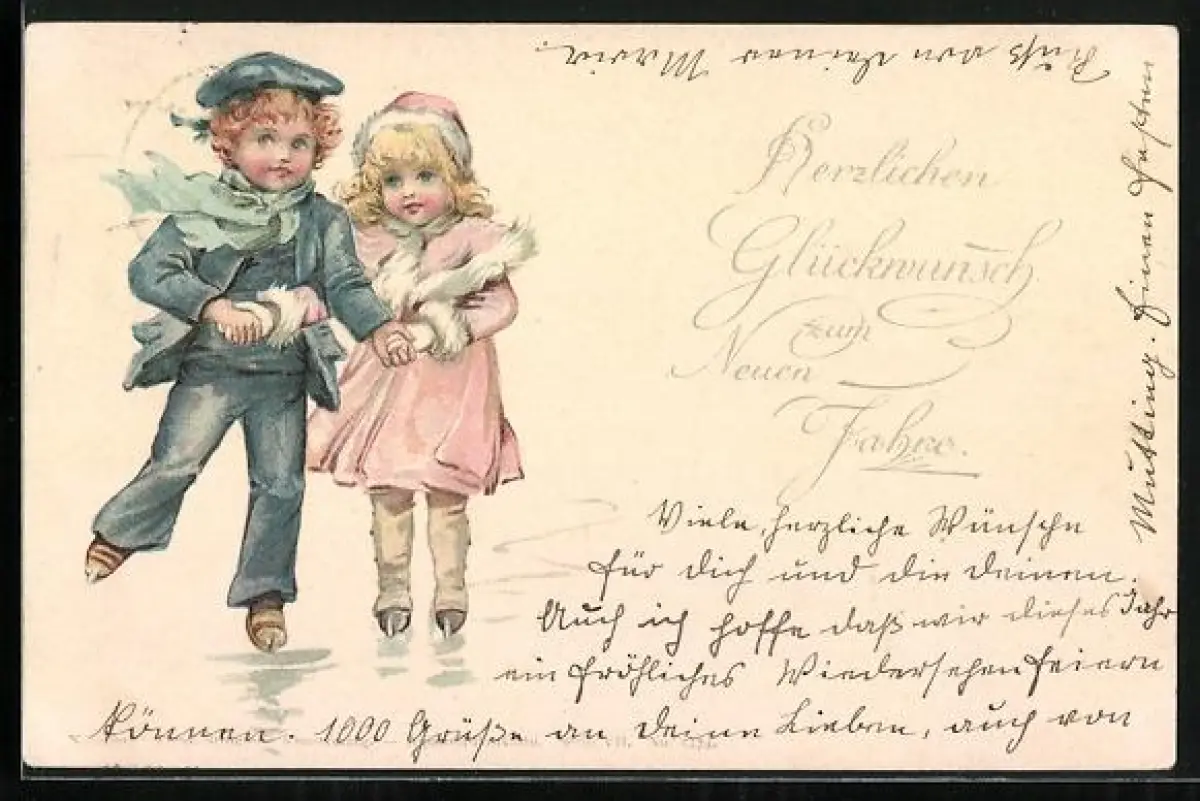 Herzlichen
Glückwunsch
zum
Neuen
Jahre.
Viele, herzliche Wünsche
für dich und die deinen.
Auch ich hoffe daß wir dieses Jahr
ein fröhliches Wiedersehen feiern
können. 1000 Grüße an deine Lieben, auch von
Mutting. Einen festen
Kuß von deiner Maria.